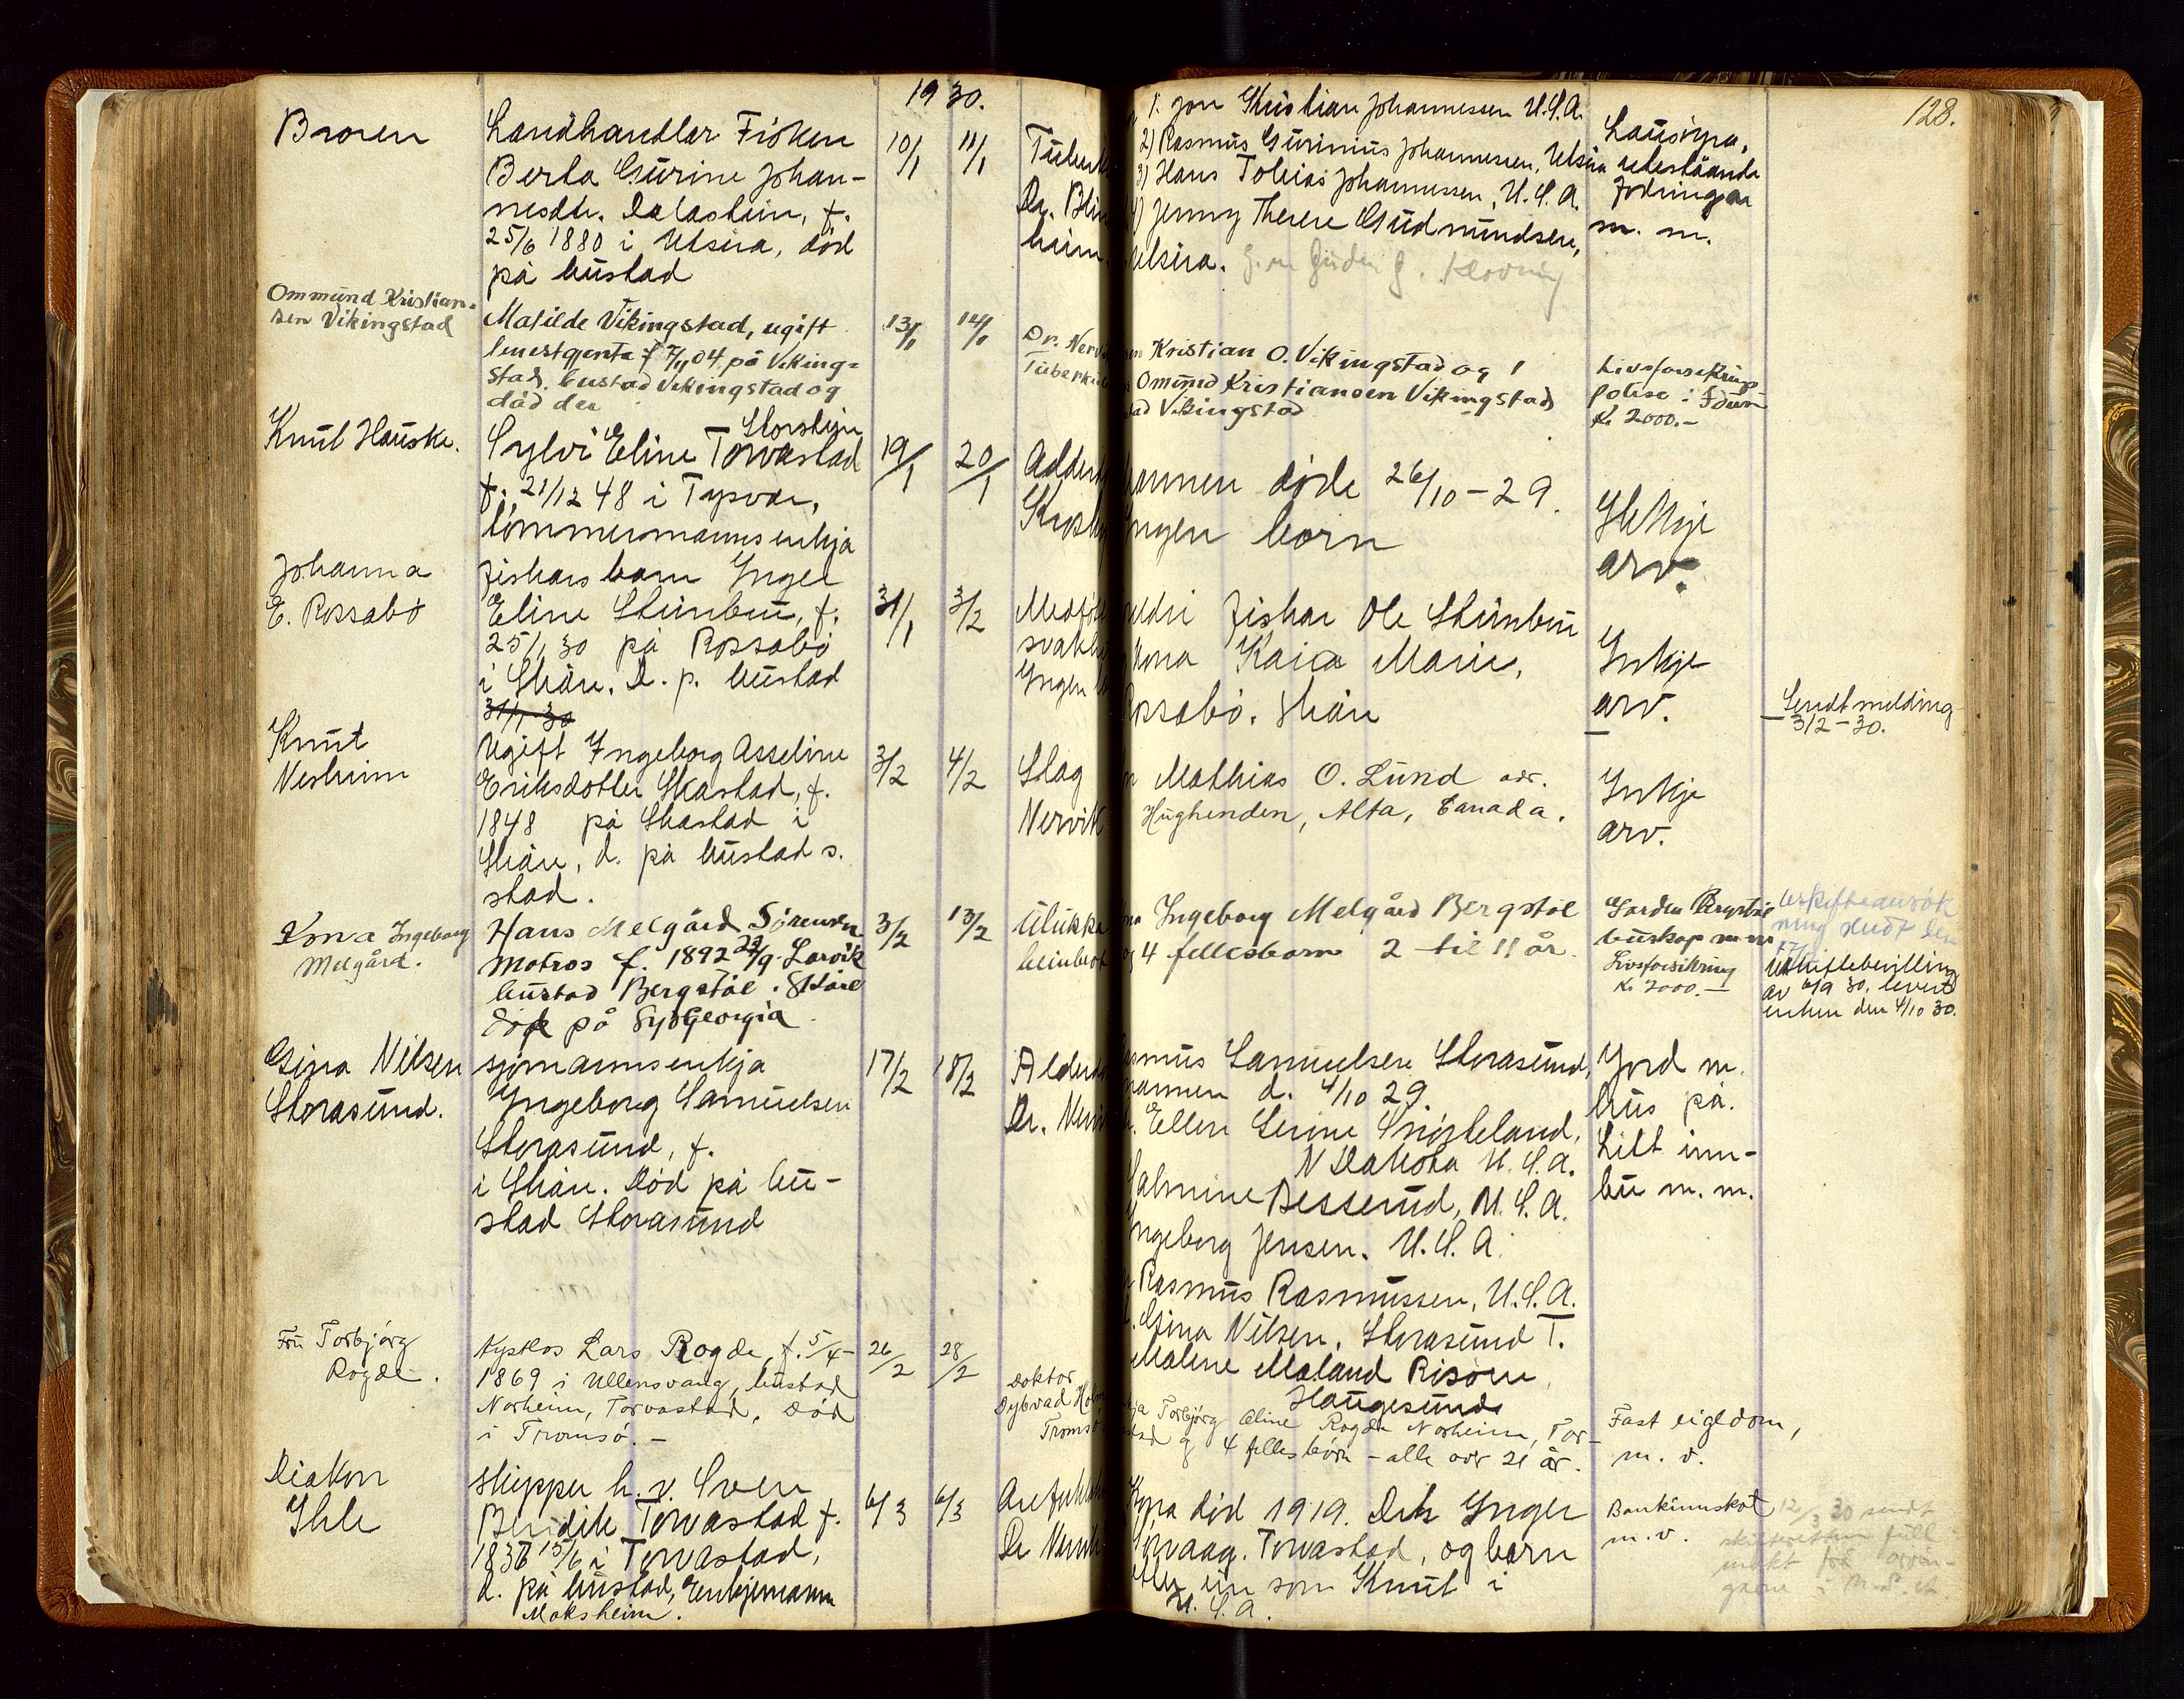 1930.
128.
Broren
Landhandlar Fisken
Berta Gurine Johan-
nesdtr. Dalastein, f.
25/6 1880 i Utsira, död
på bustad
10/1
11/1
Dr. Blin
heim.
1. Jon Kristian Johannessen U.S.A.
2) Rasmus Gurinius Johannessen, Utsira
3) Hans Tobias Johannessen, U.S.A.
4) Jenny Therese Gudmundsen,
Utsira.
Lausöyra,
uteståande
fodringar
m. m.
Ommund Kristian-
sen Vikingstad
Matilde Vikingstad, ugift
tenestgjenta f 7/11 04 på Viking-
stad. bustad Vikingstad og
död der
13/1
14/1
Dr. Nervi
Tuberkul
Kristian O. Vikingstad og
Ommund Kristiansen Vikingstad
Vikingstad
Livsforsikring
polise i Idun
Kr 2000.-
Knut Hauske.
Storstein
Sylvi Eline Torvastad
f. 21/12 48 i Tysvær,
tömmermanns enkja
19/1
20/1
Adderd
mannen döde 26/10-29.
Ingen born
Ikkje
arv.
Johanna
E. Rossabö
Fiskars barn Inger
Eline Steinbru, f.
25/1 30 på Rossabö
i Skåre. D. p. bustad
31/1 30
31/1
3/2
Medfö
svakh
Ingen
Foreldri fiskar Ole Steinbru
kona Kaia Marie,
Rossabö. Skåre
Inkje
arv.
Sendt melding
3/2-30.
Knut
Nesheim
Ugift Ingeborg Asseline
Eriksdotter Skastad, f.
1848 på Skastad i
Skåre, d. på bustad s.
stad.
3/2
4/2
Slag
Nervik
Mathias O. Lund adr.
Hughenden, Alta, Canada.
Inkje
arv.
Kona Ingeborg
Melgård.
Hans Melgård Sörensen
Matros f. 1892 23/9. Larvik
bustad Bergstöl. Skåre
död på SydGeorgia
3/2
13/2
Ulukka
Ingeborg Melgård Bergstöl
og 4 fellesborn 2 til 11 år.
Garden Bergstöl
buskap m m
Livsforsikring
Kr 2000.-
Uskiftebevilling
av 6/9 30. levert
enken den 4/10 30.
Gina Nilsen
Storasund.
sjömannsenkja
Ingeborg Samuelsen
Storasund, f.
i Skåre. Död på bu-
stad Storasund
17/2
18/2
Alderd
Dr. Nervi
Rasmus Samuelsen Storasund,
mannen d. 4/10 29.
Ellen Serine
N Dakota U.S.A.
Salmine Besserud, U.S.A.
Ingeborg Jensen. U.S.A.
Rasmus Rasmussen, U.S.A.
Gina Nilsen, Storasund T.
Maline Maland Risöen,
Haugesund
Jord m.
hus på.
Litt inn-
bu m. m.
Fru Torbjörg
Rogde.
Kyrkjos Lars Rogde, f. 5/4-
1869 i Ullensvang, bustad
Norheim, Torvastad, död
i Tromsö. -
26/2
28/2
Doktor
Dybvad Holm
Tromsö
Enkja Torbjörg Oline Rogde Norheim, Tor-
stad og 4 fellesbörn - alle over 21 år.
Fast eigedom,
m. v.
Diakon
Ihle
Skipper h. v. Sven
Bendik Torvastad f.
1836 15/6 i Torvastad,
d. på bustad, Enkjemann
Moksheim.
6/3
6/3
Dr Nervik
Kona död 1919. Dtr Inger
Torvastad, og born
etter ein son Knut i
U.S.A.
Bankinnskot
m. v.
12/3 30 sendt